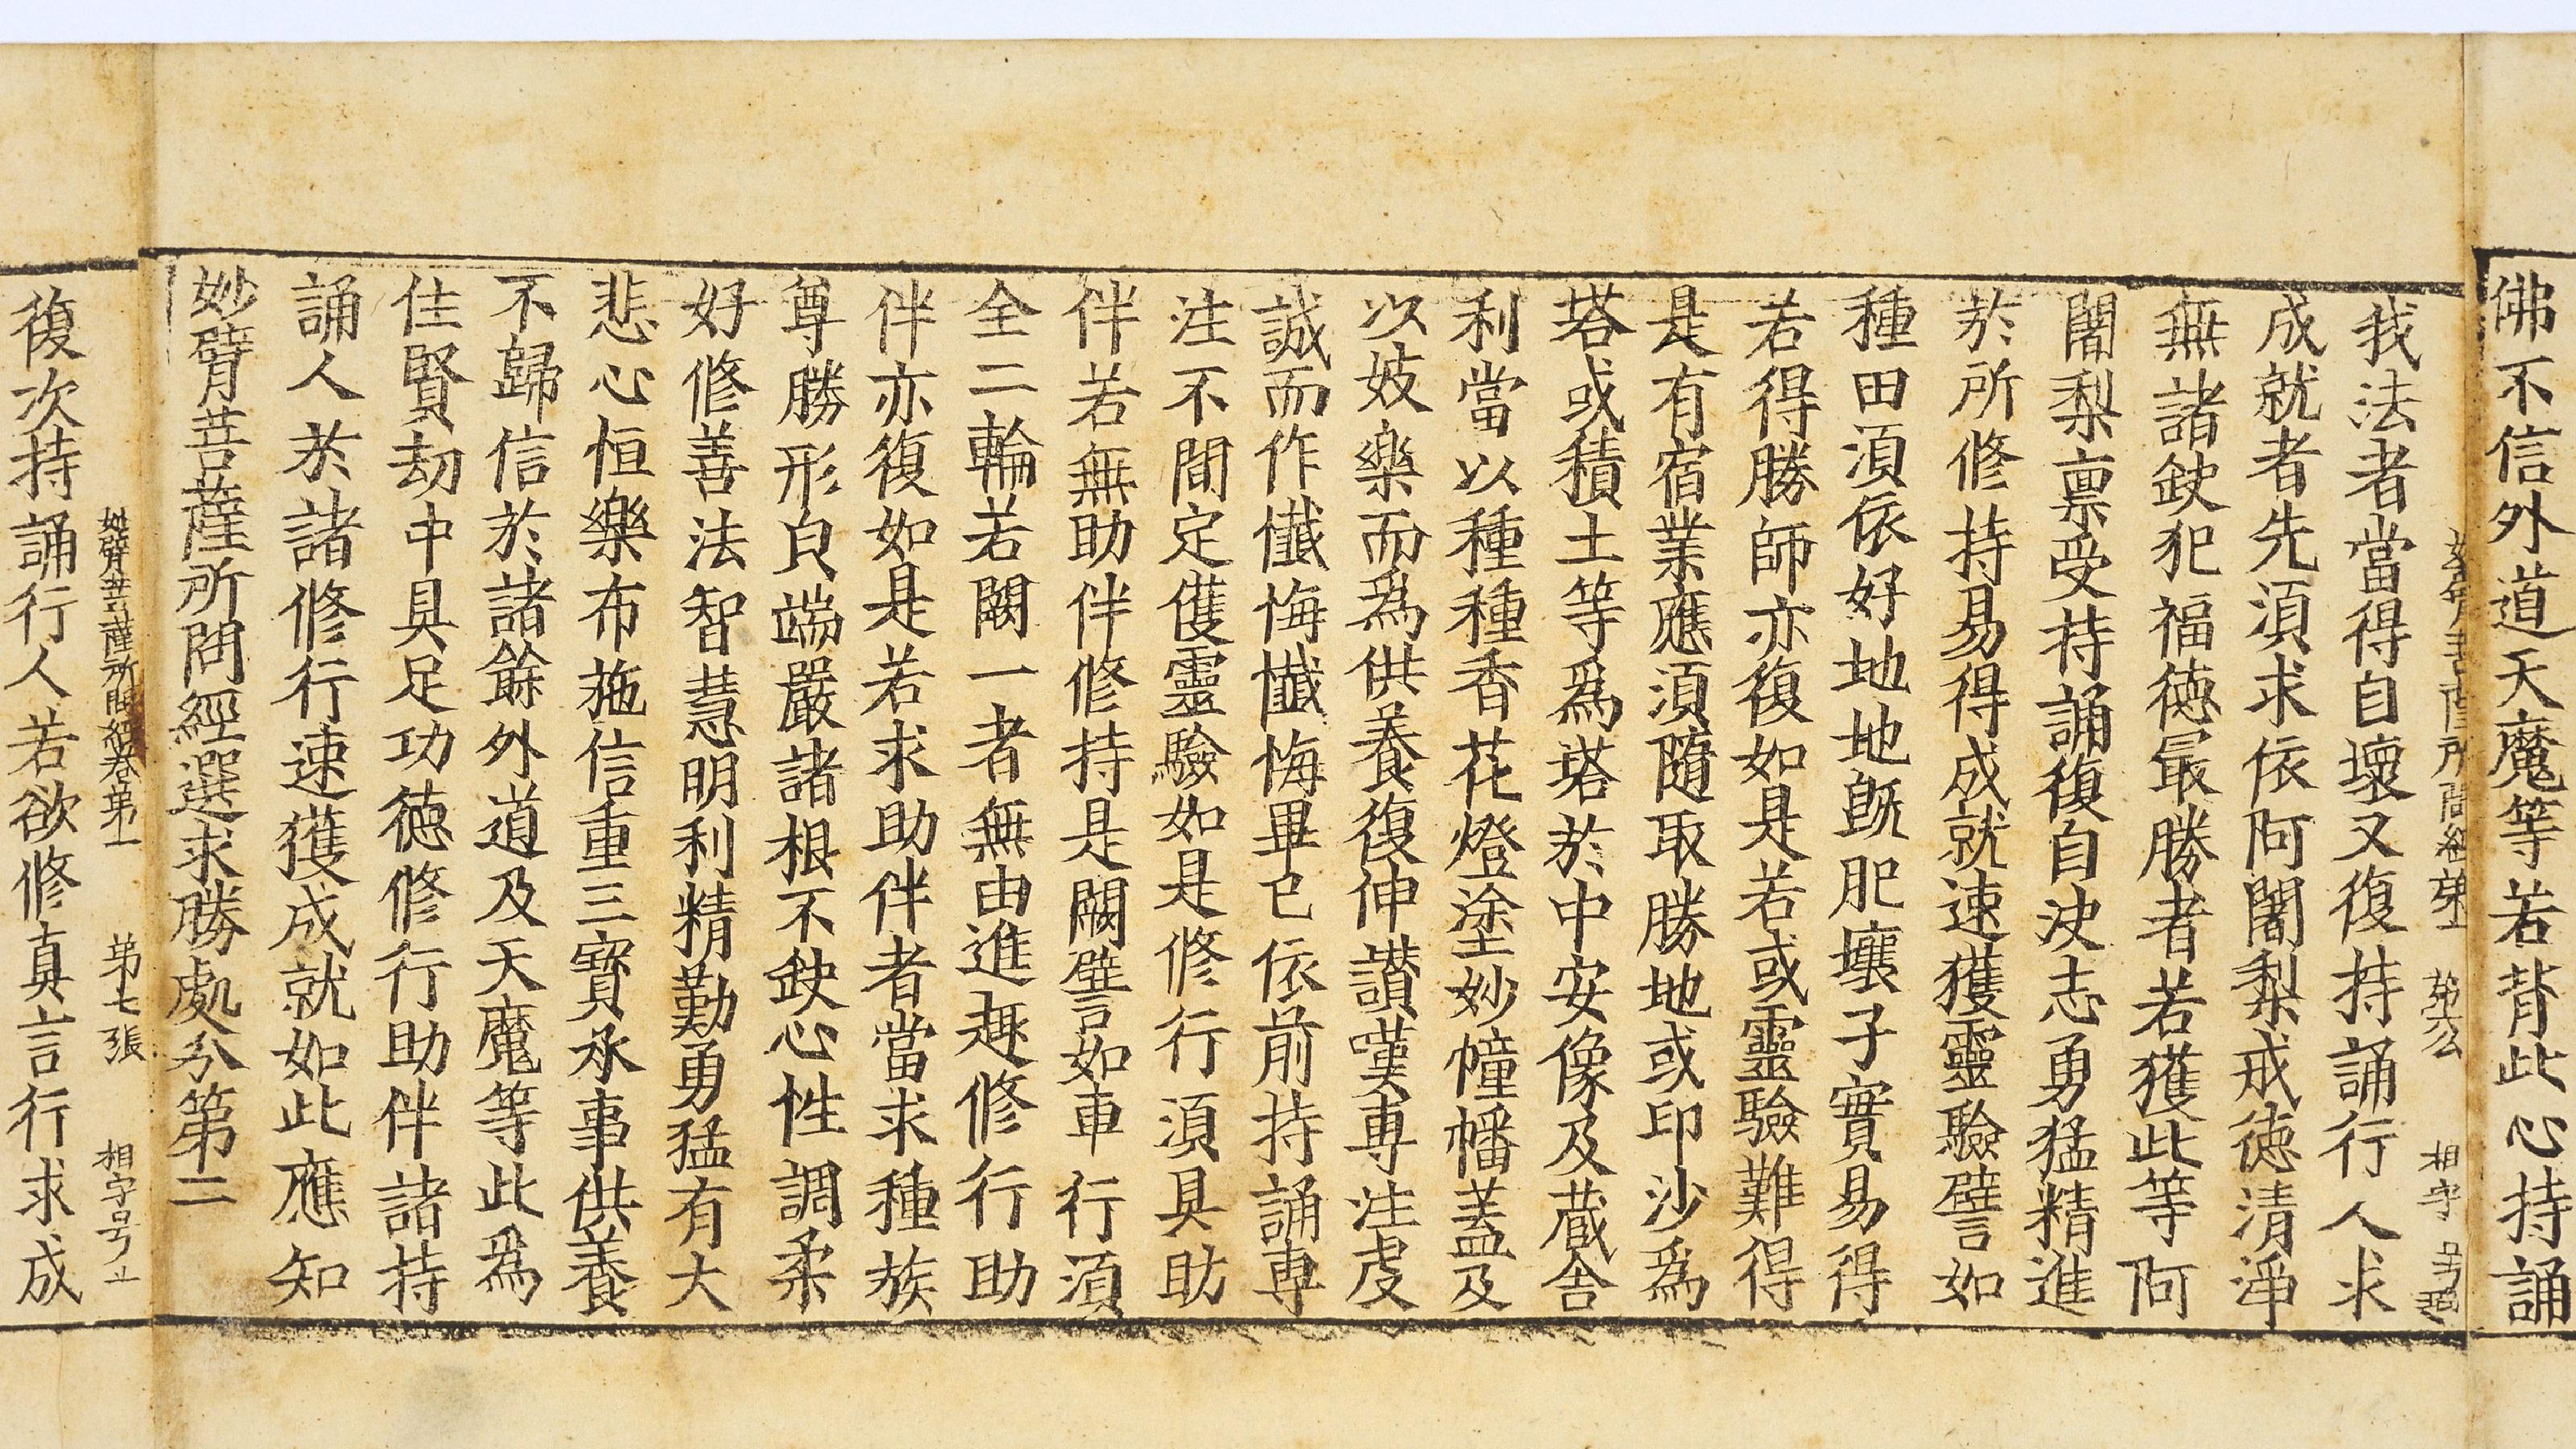 佛不信外道天魔等若背此心持誦
妙臂菩薩所問經 相字号
我法者當得自壞又復持誦行人求
成就者先須求依阿闍梨戒德清淨
無諸缺犯福德最勝者若獲此等阿
闍梨禀受持誦復自決志勇猛精進
於所修持易得成就速獲靈驗譬如
種田須依好地地既肥壤子實易得
若得勝師亦復如是若或靈驗難得
是有宿業應須隨取勝地或印沙為
塔或積土等為塔於中安像及藏舍
利當以種種香花燈塗妙幢幡盖及
以妓樂而為供養復伸讚嘆專注虔
誠而作懺悔懺悔畢已依前持誦專
注不間定獲靈驗如是修行須具助
伴若無助伴修持是闕譬如車行須
全二輪若闕一者無由進趣修行助
伴亦復如是若求助伴者當求種族
尊勝形皃端嚴諸根不缺心性調柔
好修善法智慧明利精勤勇猛有大
悲心恒樂布施信重三寶承事供養
不歸信於諸餘外道及天魔等此為
住賢劫中具足功德修行助伴諸持
誦人於諸修行速獲成就如此應知
妙臂菩薩所問經選求勝處分第二
妙臂菩薩所問經卷第一 第七張 相字号
復次持誦行人若欲修真言行求成